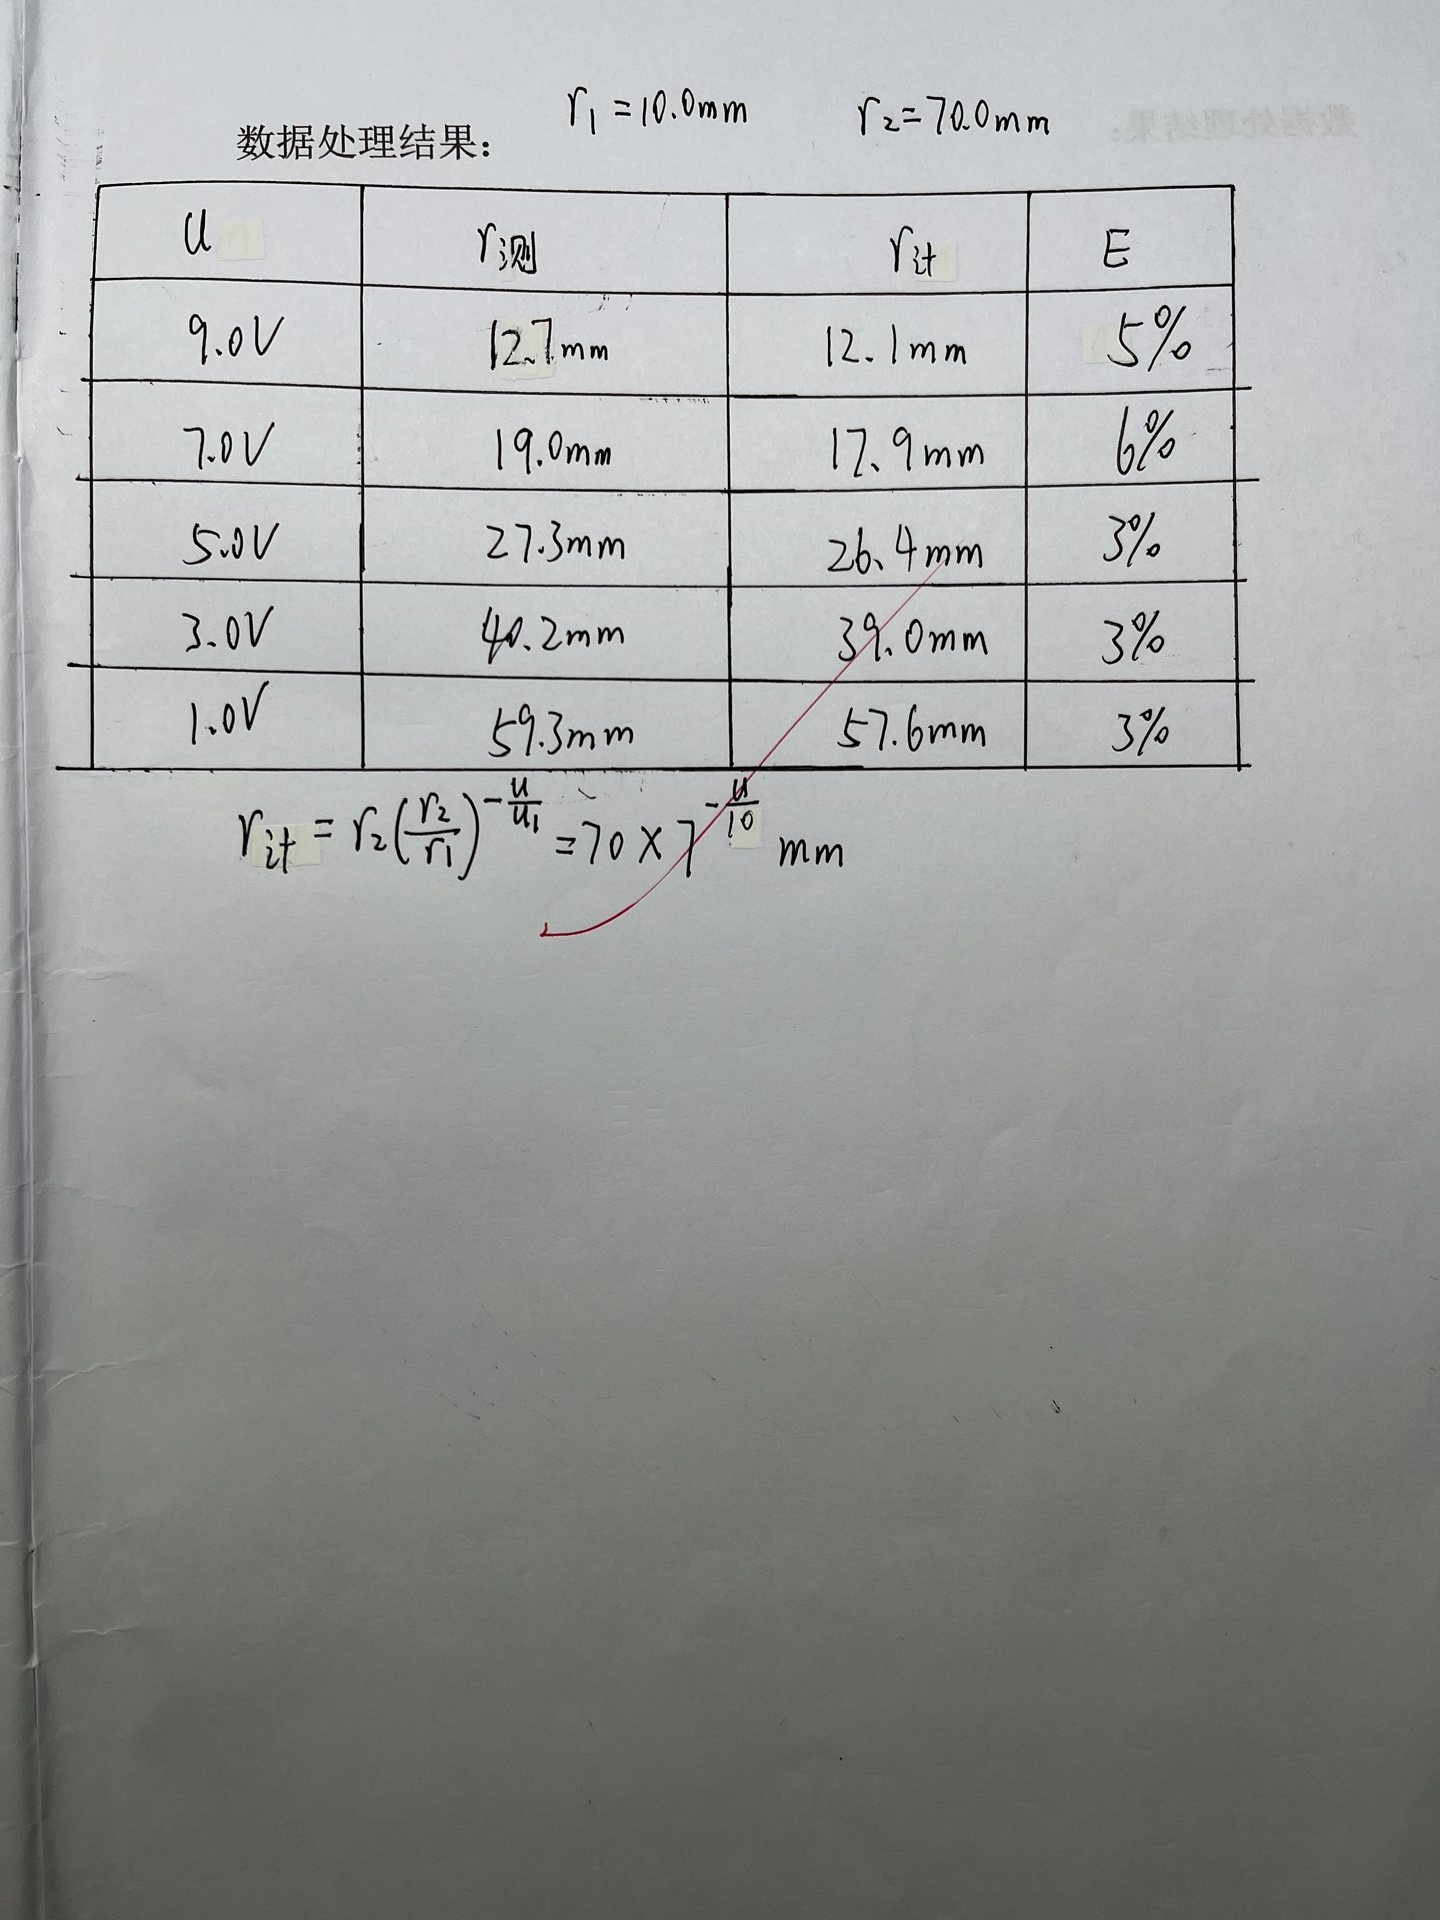 r₁=10.0mm r₂=70.0mm
数据处理结果：
U r测 r计 E
9.0V 12.7mm 12.1mm 5%
7.0V 19.0mm 17.9mm 6%
5.0V 27.3mm 26.4mm 3%
3.0V 40.2mm 39.0mm 3%
1.0V 59.3mm 57.6mm 3%
r计=r₂(r₂/r₁)^(-u/u₁)=70×7^(-u/10) mm